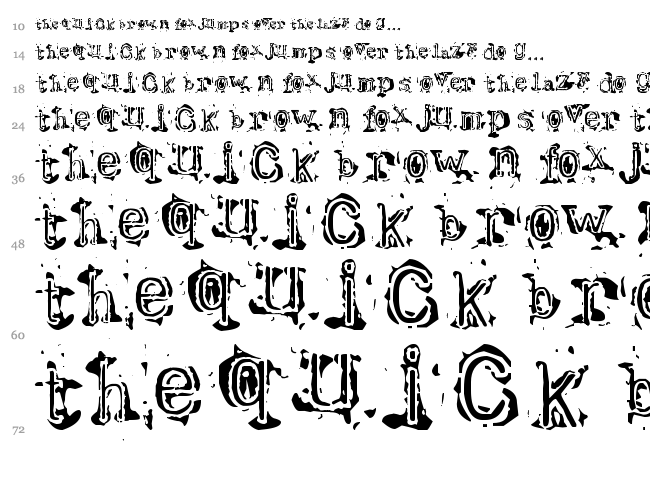 10 the quick brown fox jumps over the lazy dog...
14 the quick brown fox jumps over the lazy dog...
18 the quick brown fox jumps over the lazy dog
24 the quick brown fox jumps over t
36 the quick brown fox j
48 the quick brow
60 the quick bro
72 the quick b